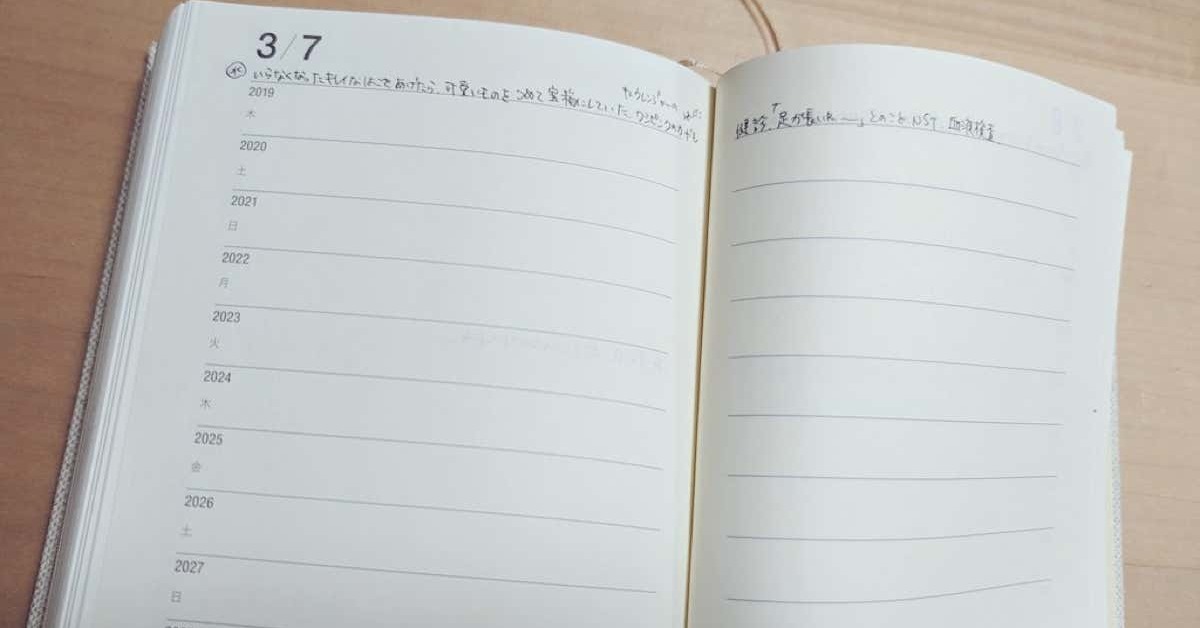 3/7
水 いらなくなったキレイなはこをあげたら、可愛いものをつめて宝箱にしていた。
健診、「足が長いね〜」とのこと NST、血液検査
2019
木
2020
土
2021
日
2022
月
2023
火
2024
木
2025
金
2026
土
2027
日